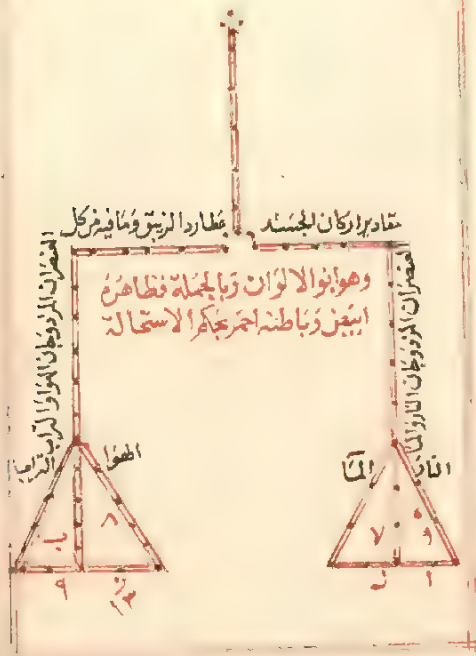 مقادير اركان الجسد
عطارد الزيبق وما فيه من كل
وهو ابو الالوان وبالجملة فظاهره
ابيض وباطنه احمر بحكم الاستحالة
العنصران المزدوجان النار والما
العنصران المزدوجان الهوا والتراب
النار
الما
الهوا
التراب
٧
٨
٩
١٣